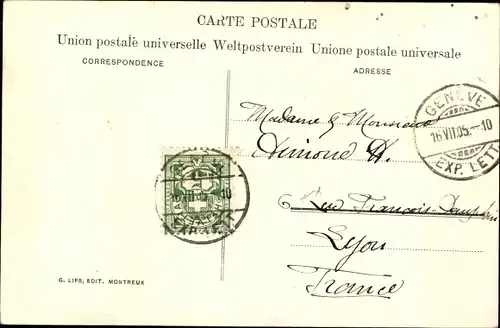 CARTE POSTALE
Union postale universelle Weltpostverein Unione postale universale
CORRESPONDENCE
ADRESSE
GENÈVE
16 VII.05.–10
EXP. LETT
Madame & Monsieur
Aimone H.
6 Rue François Dauphin
Lyon
France
G. LIPS, EDIT. MONTREUX